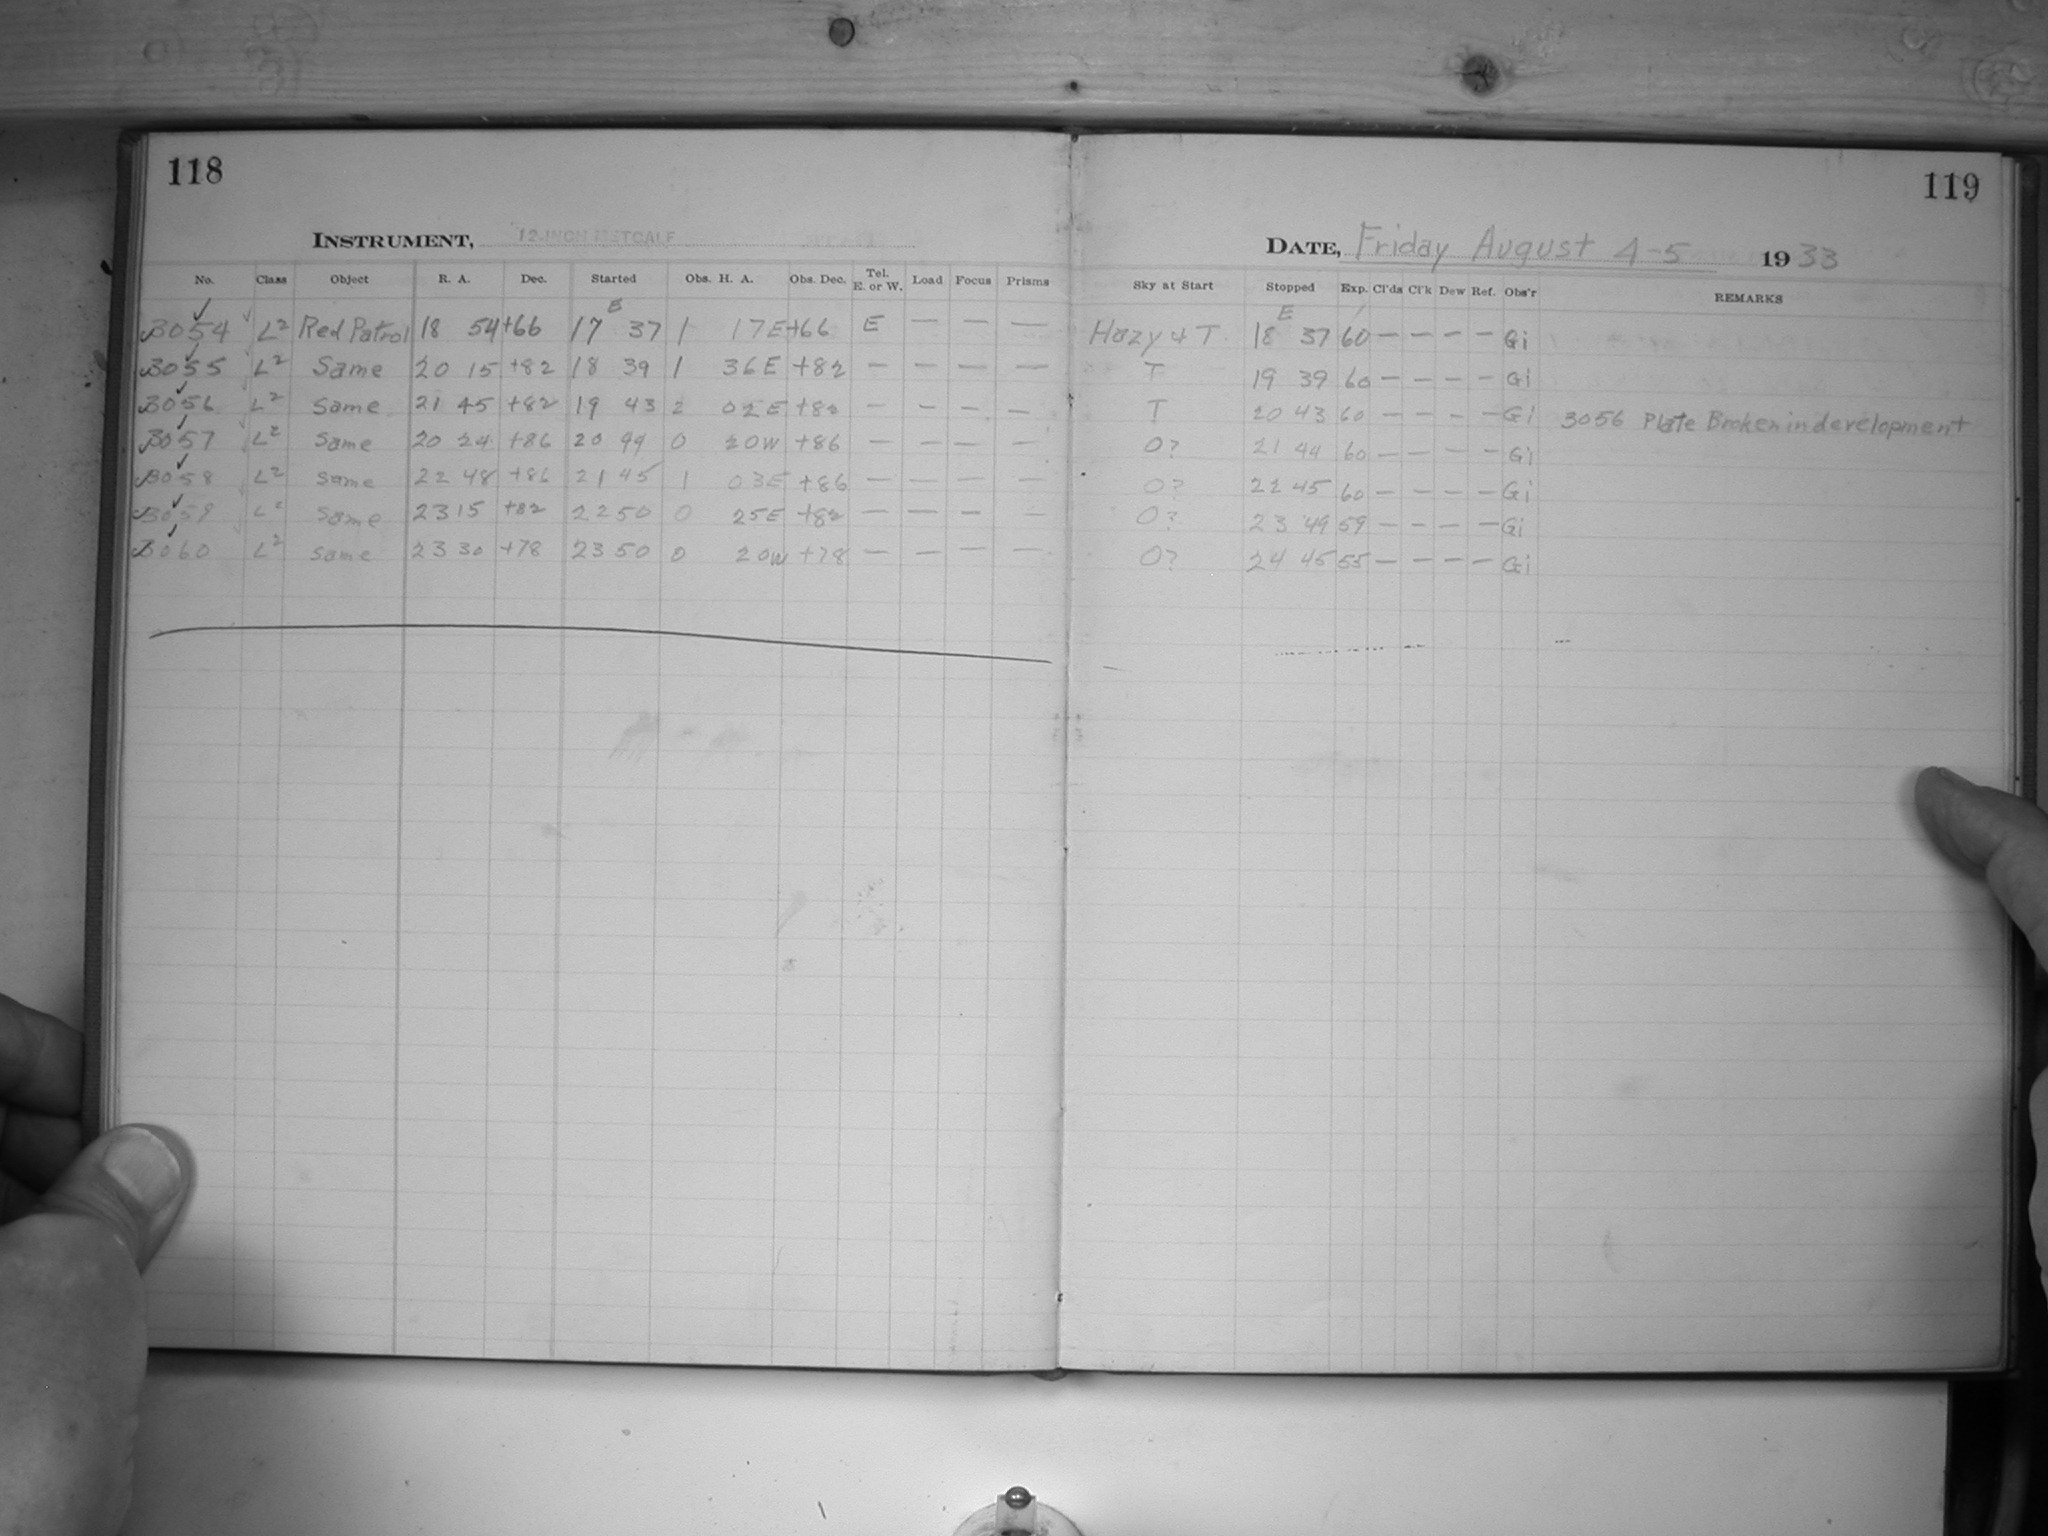 118
119
INSTRUMENT, 12-INCH METCALF
DATE, Friday August 4-5 1933
No. Class Object R. A. Dec. Started Obs. H. A. Obs. Dec. Tel. E. or W. Load Focus Prisms Sky at Start Stopped Exp. Cl'ds Cl'k Dew Ref. Obs'r REMARKS
E E
3054 L2 Red Patrol 18 54 +66 17 37 1 17E +66 E — — — Hazy & T 18 37 60 — — — — Gi
3055 L2 Same 20 15 +82 18 39 1 36E +82 — — — — T 19 39 60 — — — — Gi
3056 L2 Same 21 45 +82 19 43 2 02E +82 — — — — T 20 43 60 — — — — Gi 3056 Plate Broken in development
3057 L2 Same 20 24 +86 20 44 0 20W +86 — — — — O? 21 44 60 — — — — Gi
3058 L2 Same 22 48 +86 21 45 1 03E +86 — — — — O? 22 45 60 — — — — Gi
3059 L2 Same 23 15 +82 22 50 0 25E +82 — — — — O? 23 49 59 — — — — Gi
3060 L2 Same 23 30 +78 23 50 0 20W +78 — — — — O? 24 45 55 — — — — Gi